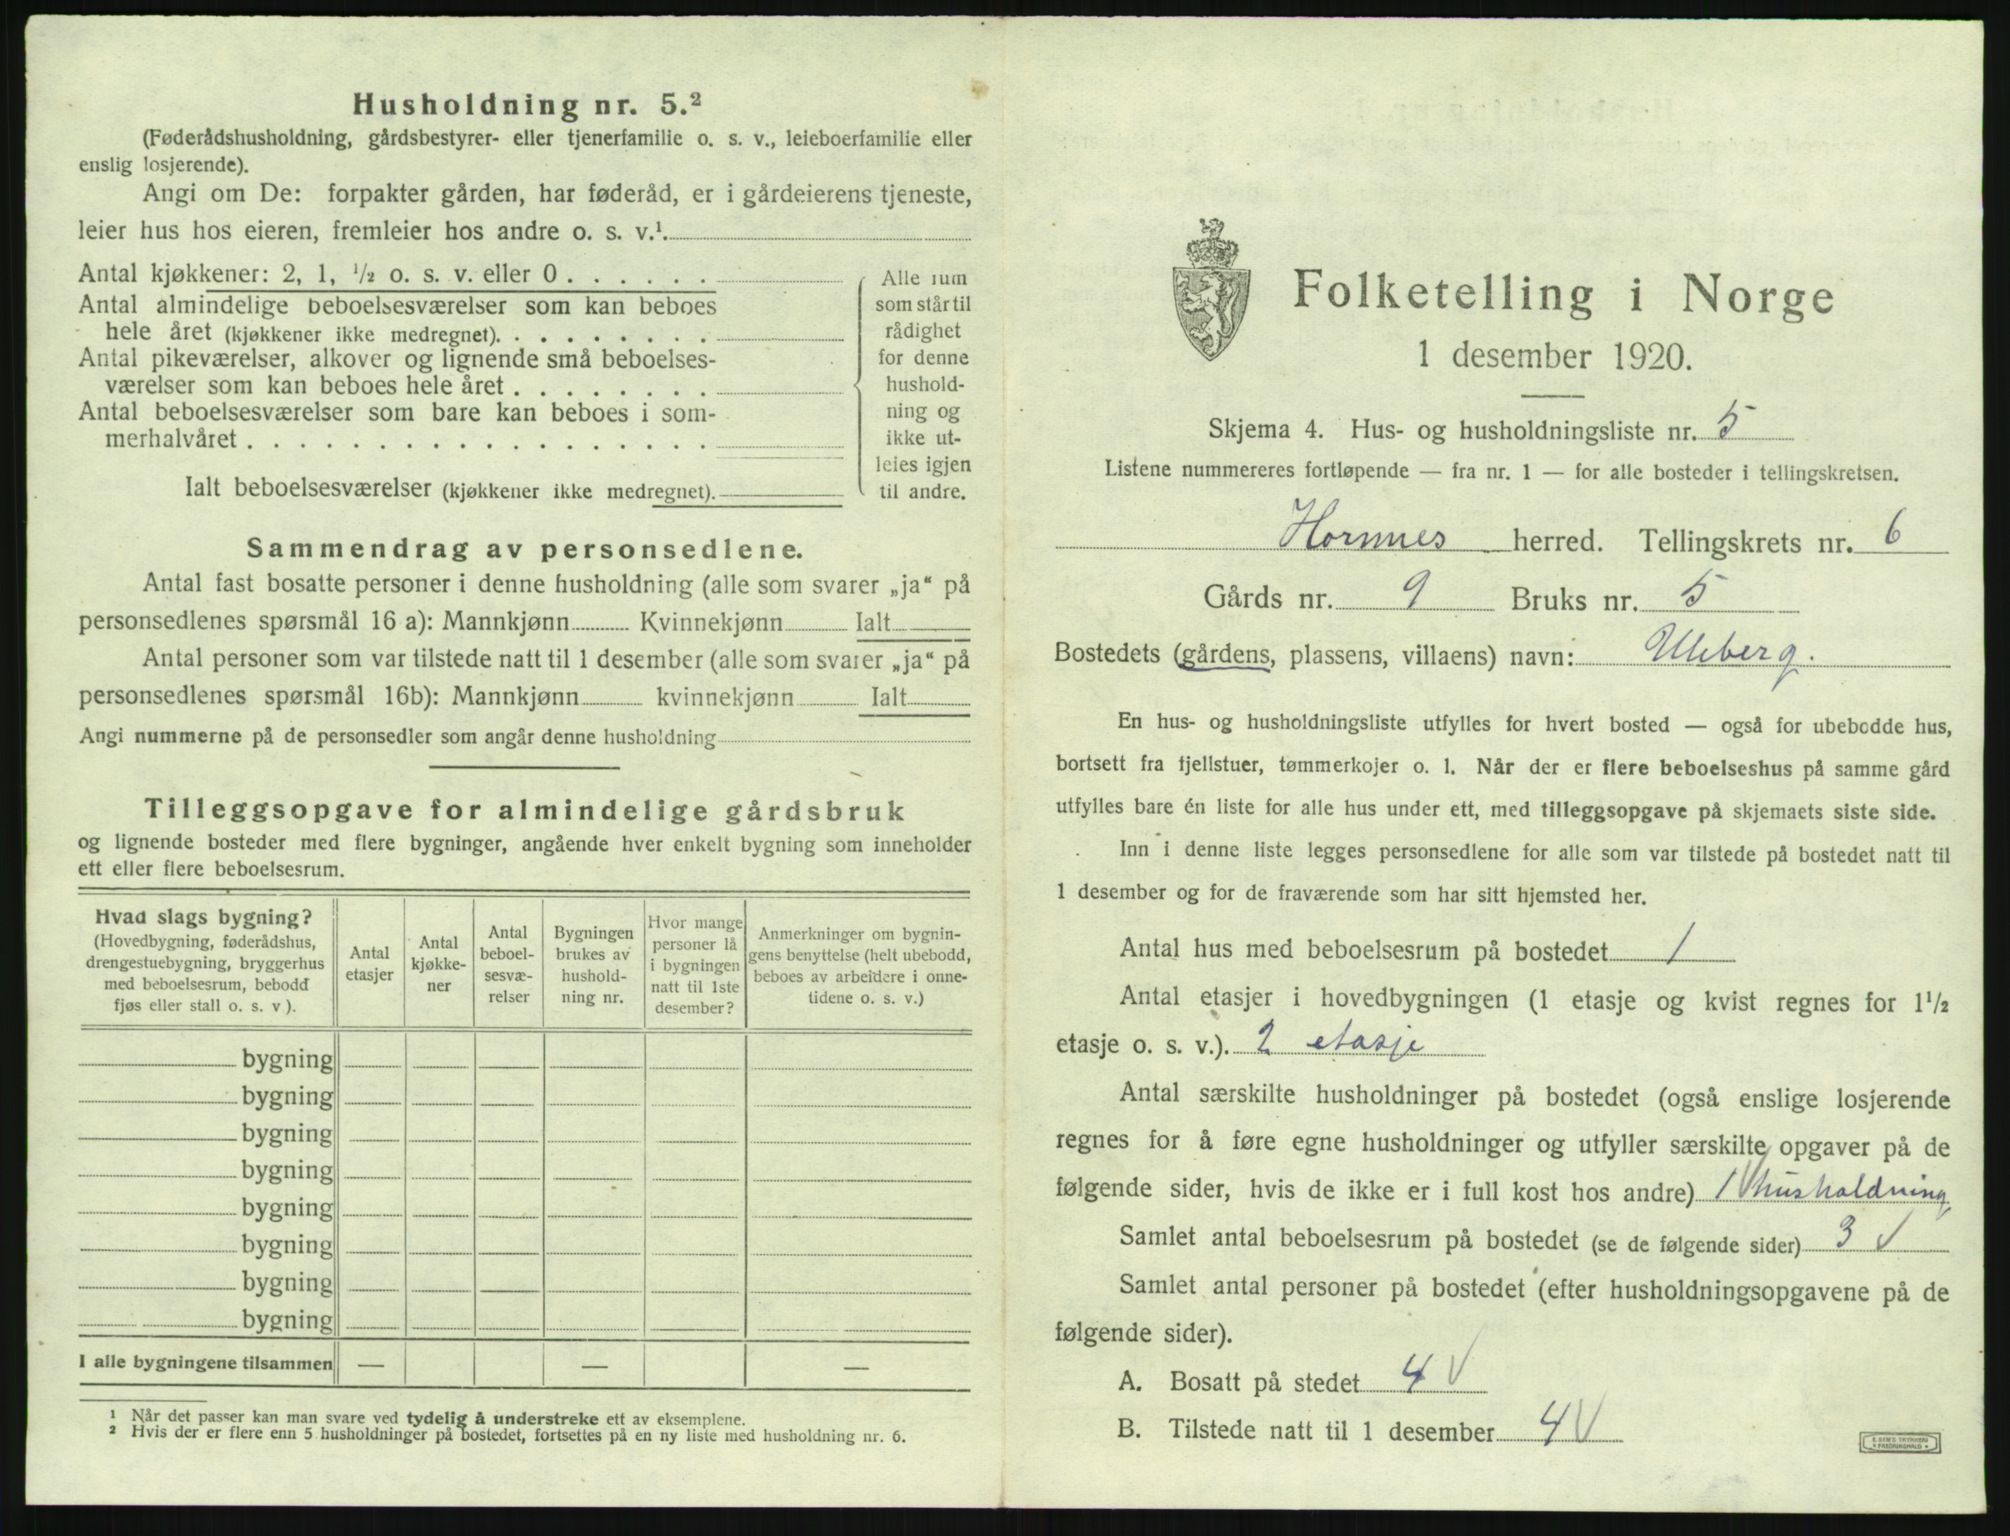 Husholdning nr. 5.²
(Føderådshusholdning, gårdsbestyrer- eller tjenerfamilie o. s. v., leieboerfamilie eller
enslig losjerende).
Angi om De: forpakter gården, har føderåd, er i gårdeierens tjeneste,
leier hus hos eieren, fremleier hos andre o. s. v.¹.
Antal kjøkkener: 2, 1, ½ o. s. v. eller 0 . . . . . .
Antal almindelige beboelsesværelser som kan beboes
hele året (kjøkkener ikke medregnet). . . . . . . . .
Antal pikeværelser, alkover og lignende små beboelses-
værelser som kan beboes hele året . . . . . . . .
Antal beboelsesværelser som bare kan beboes i som-
merhalvåret . . . . . . . . . . . . . . . . . .
Ialt beboelsesværelser (kjøkkener ikke medregnet).
Alle rum
som står til
rådighet
for denne
hushold-
ning og
ikke ut-
leies igjen
til andre.
Sammendrag av personsedlene.
Antal fast bosatte personer i denne husholdning (alle som svarer „ja“ på
personsedlenes spørsmål 16 a): Mannkjønn Kvinnekjønn Ialt
Antal personer som var tilstede natt til 1 desember (alle som svarer „ja“ på
personsedlenes spørsmål 16b): Mannkjønn kvinnekjønn Ialt
Angi nummerne på de personsedler som angår denne husholdning
Tilleggsopgave for almindelige gårdsbruk
og lignende bosteder med flere bygninger, angående hver enkelt bygning som inneholder
ett eller flere beboelsesrum.
Hvad slags bygning?
(Hovedbygning, føderådshus,
drengestuebygning, bryggerhus
med beboelsesrum, bebodd
fjøs eller stall o. s. v ).
Antal
etasjer
Antal
kjøkke-
ner
Antal
beboel-
sesvæ-
relser
Bygningen
brukes av
hushold-
ning nr.
Hvor mange
personer lå
i bygningen
natt til 1ste
desember?
Anmerkninger om bygnin-
gens benyttelse (helt ubebodd,
beboes av arbeidere i onne-
tidene o. s. v.)
bygning
bygning
bygning
bygning
bygning
bygning
bygning
bygning
I alle bygningene tilsammen — — —
¹ Når det passer kan man svare ved tydelig å understreke ett av eksemplene.
² Hvis der er flere enn 5 husholdninger på bostedet, fortsettes på en ny liste med husholdning nr. 6.
Folketelling i Norge
1 desember 1920.
Skjema 4. Hus- og husholdningsliste nr. 5
Listene nummereres fortløpende — fra nr. 1 — for alle bosteder i tellingskretsen.
Hornnes herred. Tellingskrets nr. 6
Gårds nr. 9 Bruks nr. 5
Bostedets (gårdens, plassens, villaens) navn: Uleberg.
En hus- og husholdningsliste utfylles for hvert bosted — også for ubebodde hus,
bortsett fra fjellstuer, tømmerkojer o. l. Når der er flere beboelseshus på samme gård
utfylles bare én liste for alle hus under ett, med tilleggsopgave på skjemaets siste side.
Inn i denne liste legges personsedlene for alle som var tilstede på bostedet natt til
1 desember og for de fraværende som har sitt hjemsted her.
Antal hus med beboelsesrum på bostedet 1
Antal etasjer i hovedbygningen (1 etasje og kvist regnes for 1½
etasje o. s. v.). 2 etasje
Antal særskilte husholdninger på bostedet (også enslige losjerende
regnes for å føre egne husholdninger og utfyller særskilte opgaver på de
følgende sider, hvis de ikke er i full kost hos andre) 1 husholdning
Samlet antal beboelsesrum på bostedet (se de følgende sider) 3 √
Samlet antal personer på bostedet (efter husholdningsopgavene på de
følgende sider).
A. Bosatt på stedet 4 √
B. Tilstede natt til 1 desember 4 √